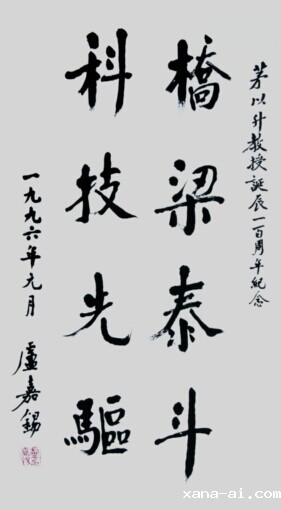 茅以升教授誕辰一百周年紀念
橋梁泰斗
科技先驅
一九九六年元月
盧嘉錫
xana-ai.com